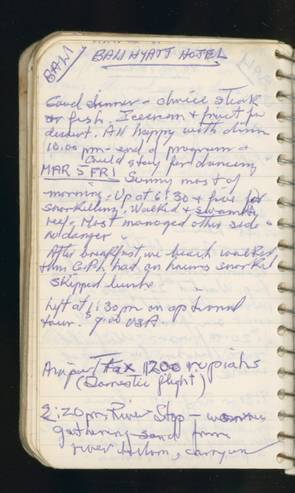 BALI
BALI HYATT HOTEL
Good dinner - choice steak
or fish. Icecream & fruit for
dessert. All happy with dinner
10:00 pm - end of program -
Could stay for dancing
MAR 5 FRI - Sunny most of
morning. Up at 6:30 & free for
snorkelling. Walked & swam to
reef. Most managed other side -
no danger -
After breakfast, we beach walked,
then had an hours snorkel
skipped lunch
Left at 1:30 pm on optional
tour. $9.00 USA.
Airport Tax 1200 rupiahs
(Domestic flight)
2:20 pm River Stop - women
gathering sand from
river bottom, carry on